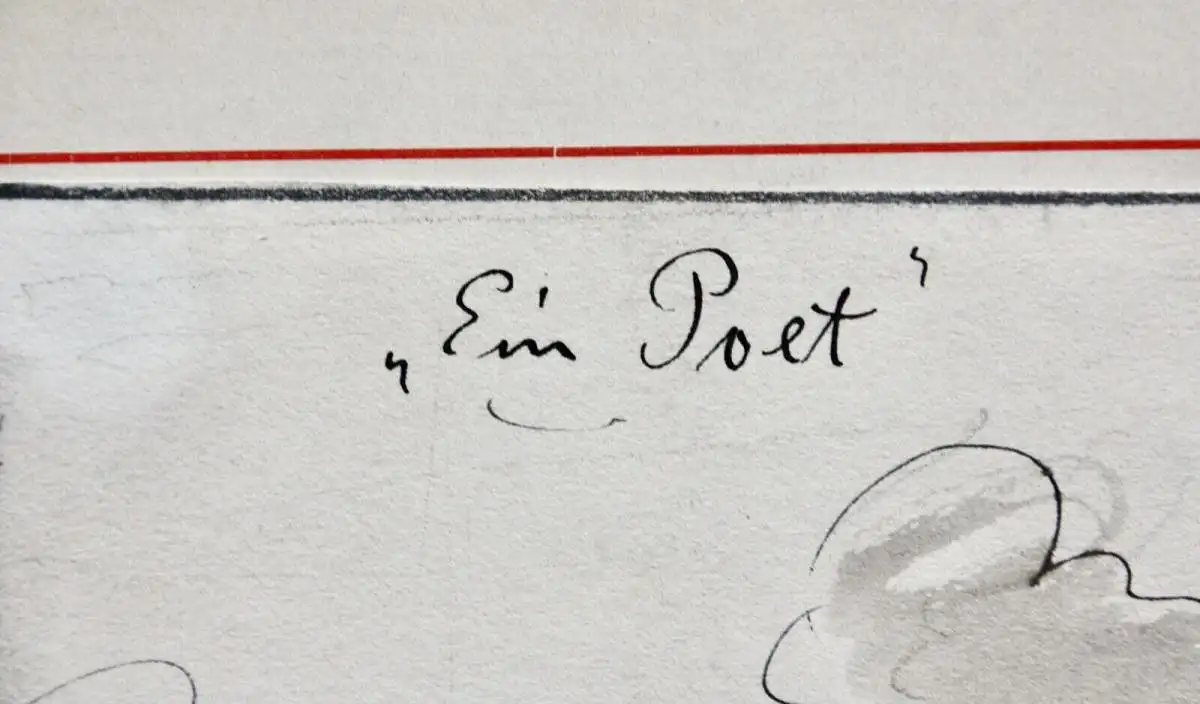 „Ein Poet“